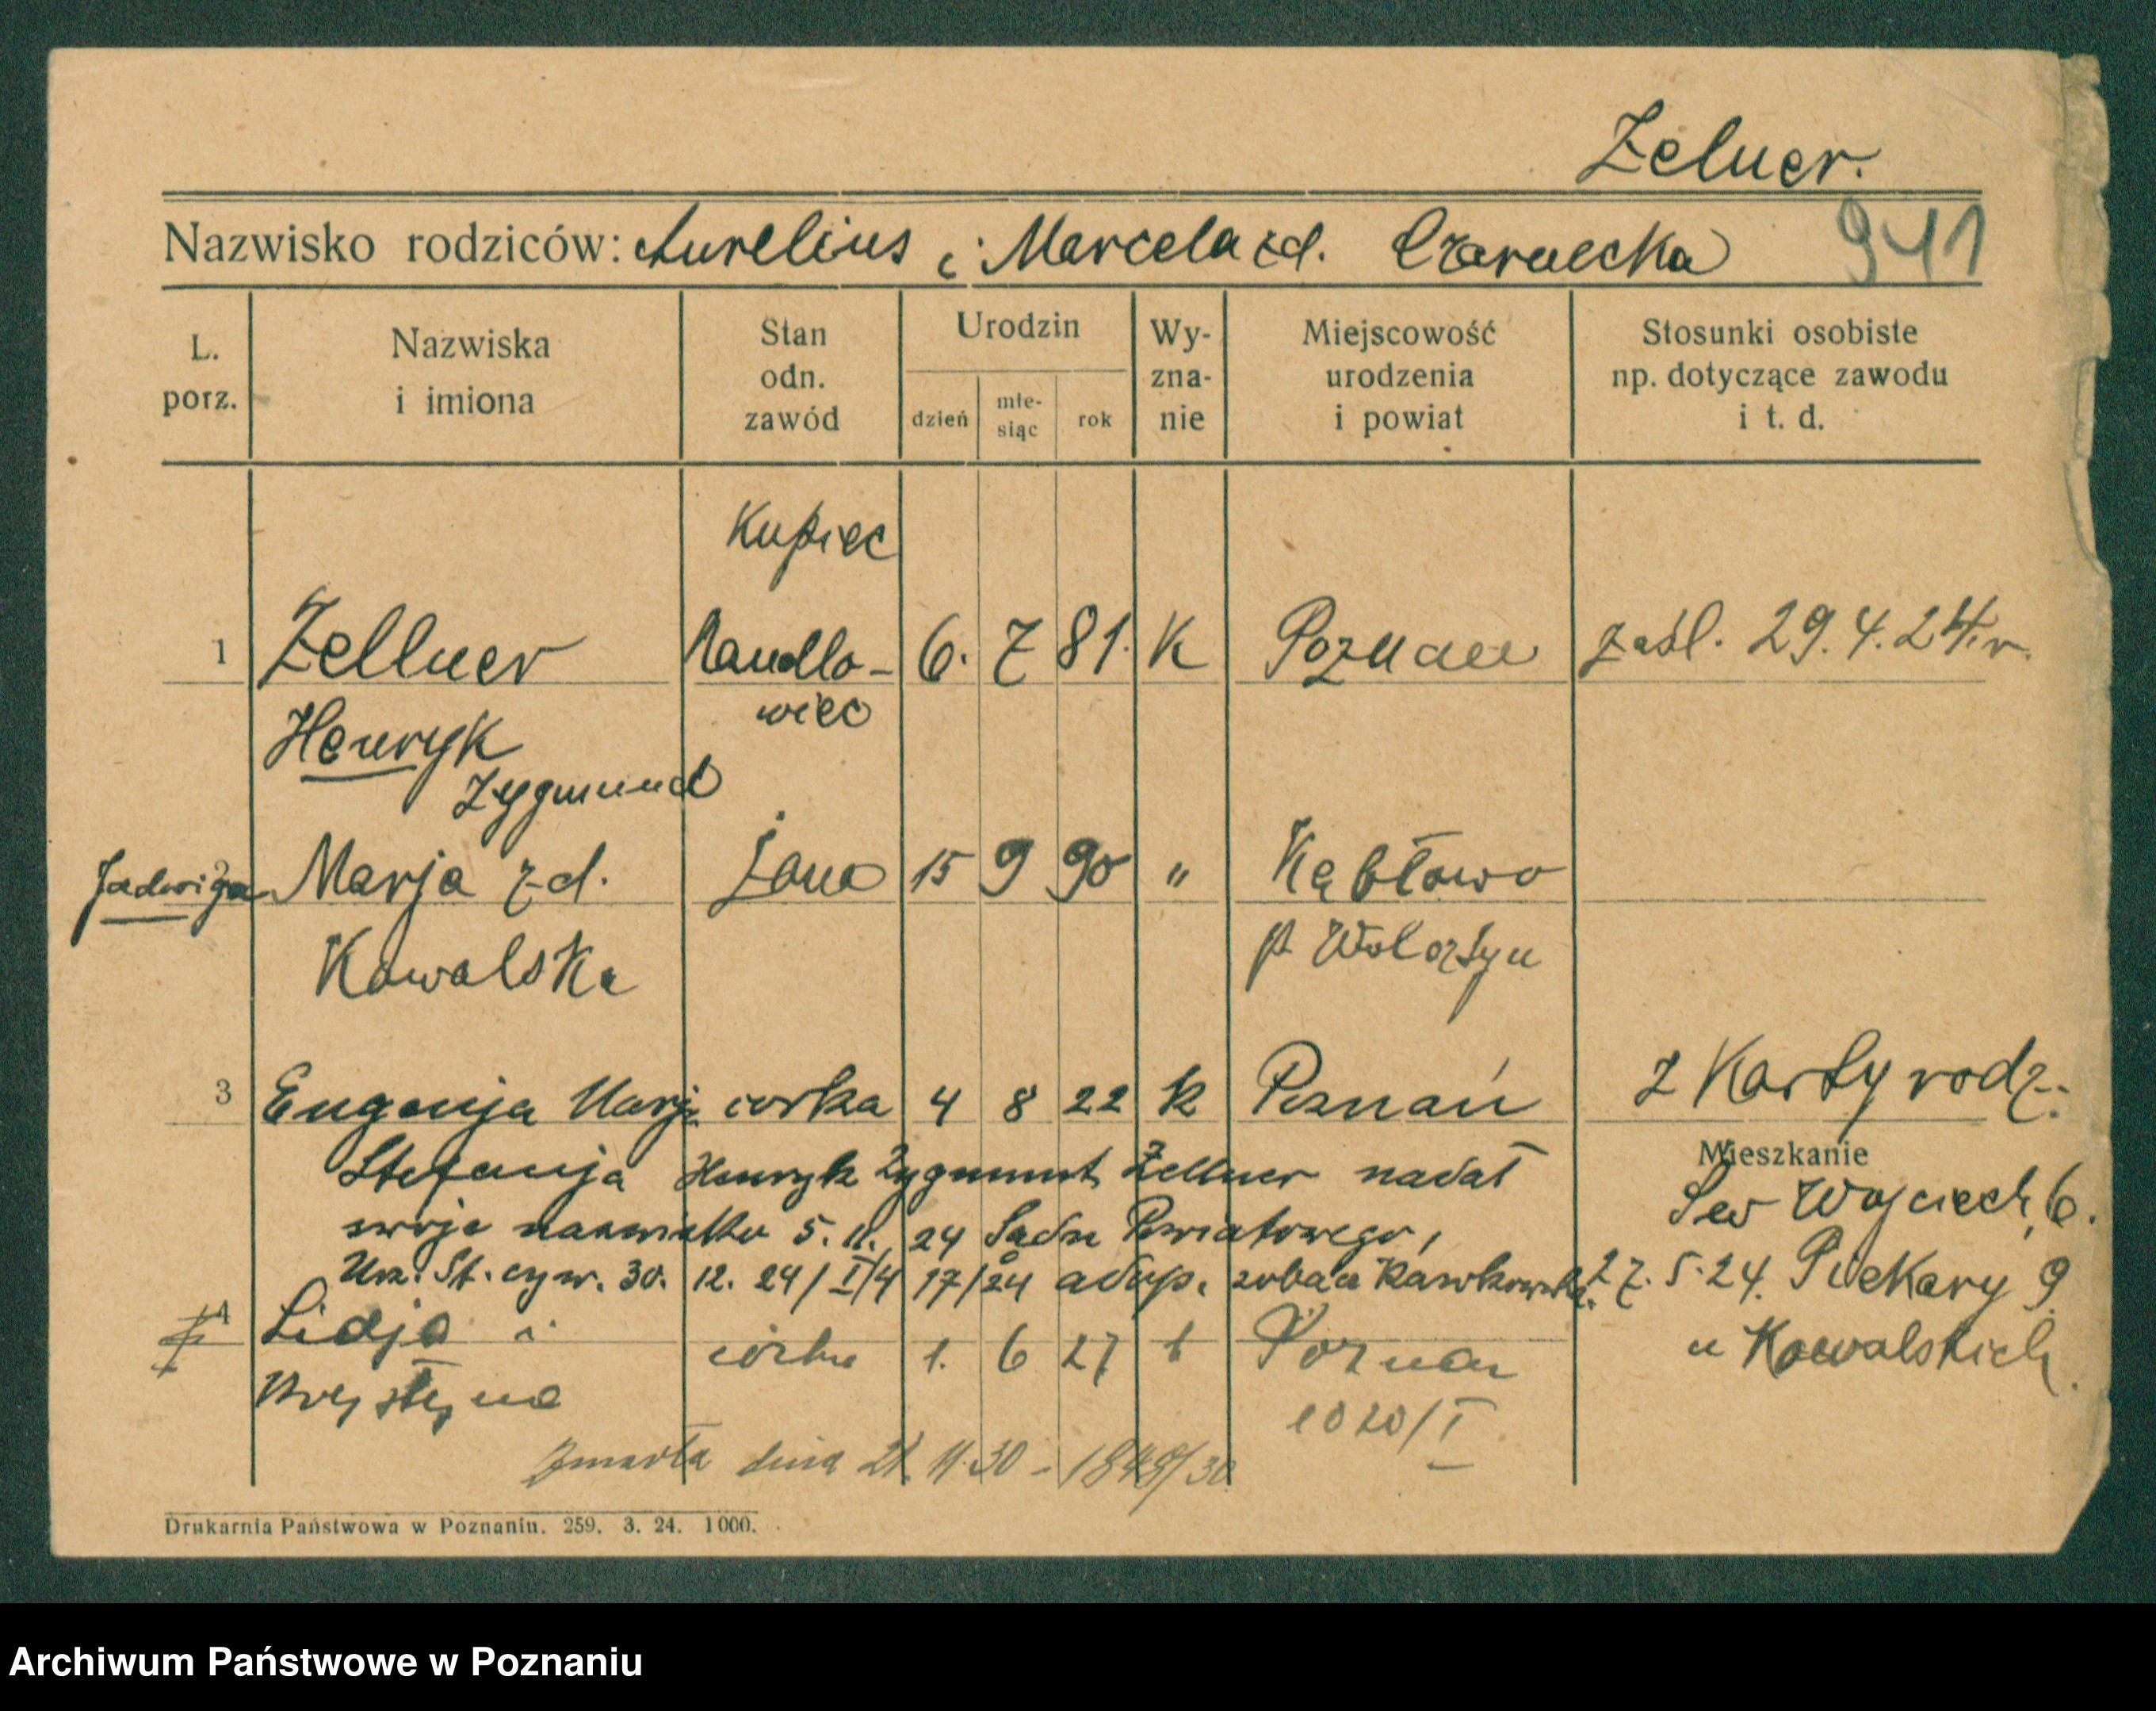 Zelner.
Nazwisko rodziców: Aurelius i Marcela zd. Czarnecka 941
L. porz.
Nazwiska i imiona
Stan odn. zawód
Urodzin
dzień
mie-siąc
rok
Wy-zna-nie
Miejscowość urodzenia i powiat
Stosunki osobiste np. dotyczące zawodu i t. d.
Kupiec
1 Zellner handlo- 6. 7 81. K Poznań zaśl. 29.4.24.r.
wiec
Henryk
Zygmund
2 Jadwiga Marja zd. żona 15 9 90 " Kębłowo
Kowalska p. Wolsztyn
3 Eugenja Marja córka 4 8 22 k Poznań z Karty rodz.
Mieszkanie
Stefanja Henryk Zygmunt Zellner nadał
Sw Wojciech 6.
swoje nazwisko 5. 11. 24 Sądu Powiatowego,
Urz. St. cyw. 30. 12. 24 / I/4 17/24 adop. zobacz
27. 5. 24. Piekary 9
4 Lidja i córka 1. 6 27 k Poznań
u Kowalskich
Krystyna
1020/I
Zmarła dnia 21. 11. 30 - 1848/30
Drukarnia Państwowa w Poznaniu. 259. 3. 24. 1000.
Archiwum Państwowe w Poznaniu